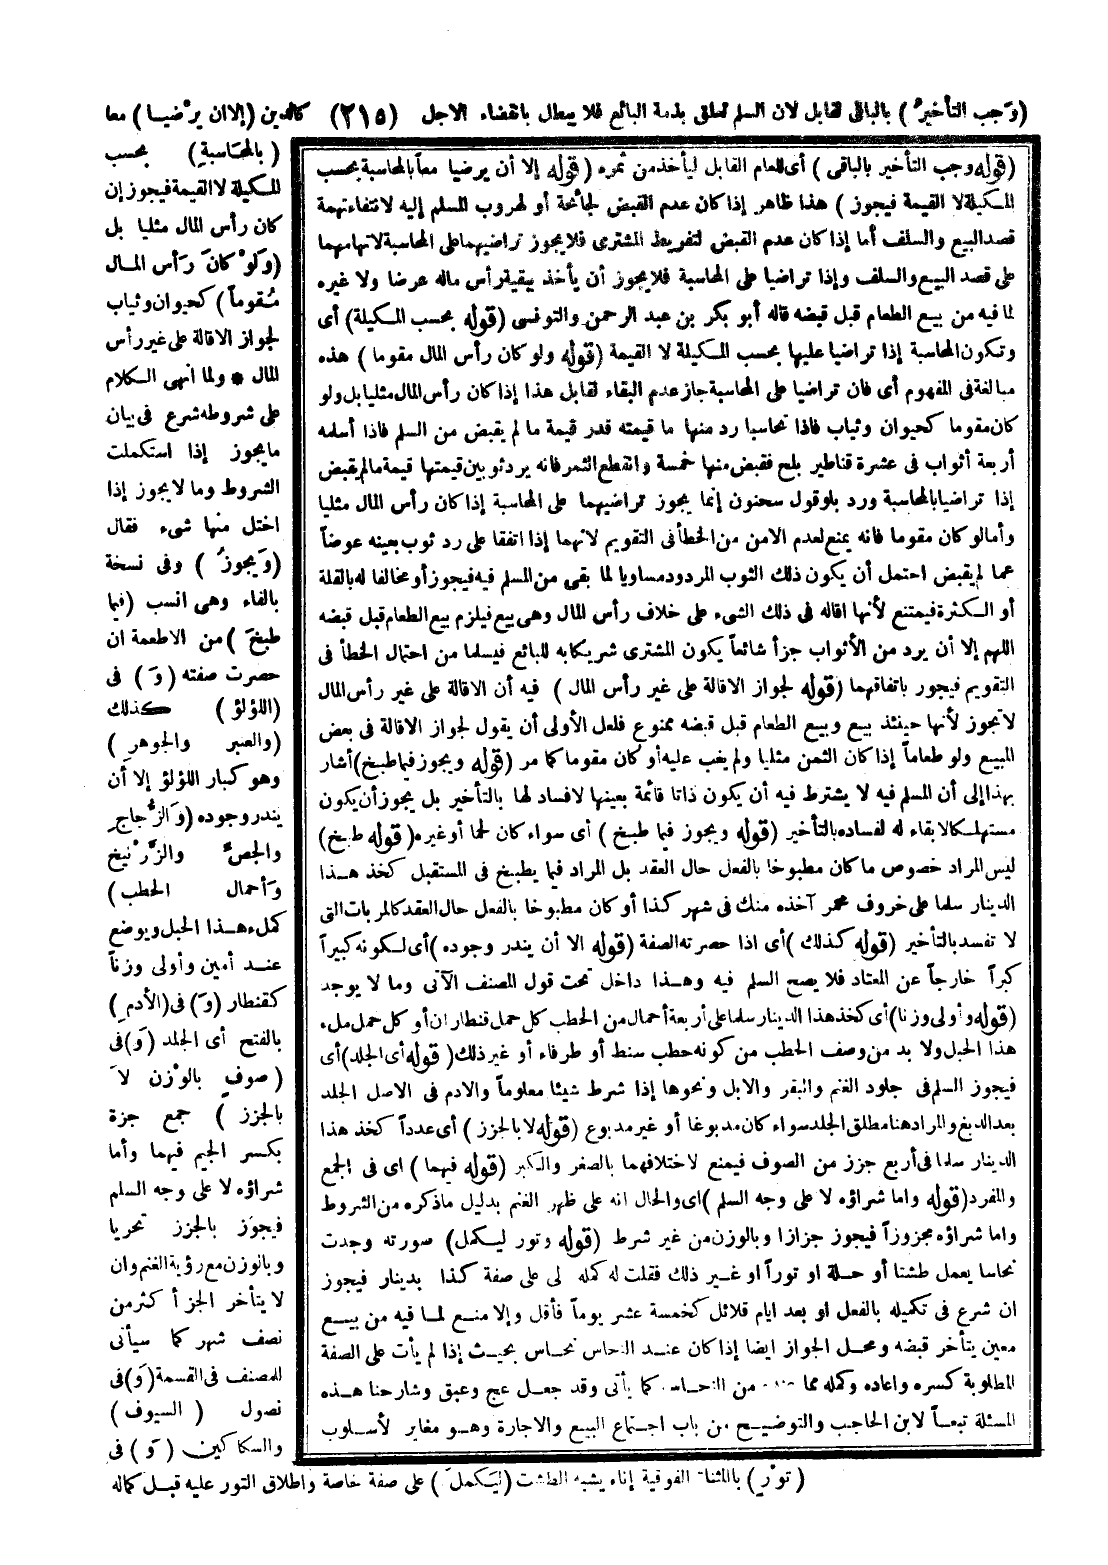 (وَجب التأخيرُ) بالباقى لقابل لان السلم تعلق بذمة البائع فلا يبطل بانقضاء الاجل (٢١٥) كالدين (إلا ان يرْضيا) معا
(بالمحَاسبةِ) بحسب
المكيلة لا القيمة فيجوز إن
كان رأس المال مثليا بل
(وَلوْ كانَ رَأس المال
مُقوماً) كحيوان وثياب
لجواز الاقالة على غير رأس
المال * ولما انهى الكلام
على شروطه شرع فى بيان
ما يجوز إذا استكملت
الشروط وما لا يجوز إذا
اختل منها شىء فقال
(وَيجوزُ) وفى نسخة
بالفاء وهى انسب (فيما
طبخَ) من الاطعمة ان
حصرت صفته (وَ) فى
(اللؤلؤ) كذلك
(والعنبر والجوهرِ)
وهو كبار اللؤلؤ إلا أن
يندر وجوده (وَالزُّجاجِ
والجصِّ والزَّرْنيخ
وَأحمال الحطب)
كملء هذا الحبل ويوضع
عند أمين وأولى وزناً
كقنطار (وَ) فى (الأدمِ)
بالفتح أى الجلد (وَ) فى
(صوفٍ بالوْزن لاَ
بالجزز) جمع جزة
بكسر الجيم فيهما وأما
شراؤه لا على وجه السلم
فيجوز بالجزز تحريا
وبالوزن مع رؤية الغنم وان
لا يتأخر الجز أكثر من
نصف شهر كما سيأتى
للمصنف فى القسمة (وَ) فى
نصول (السيوف)
والسكاكين (وَ) فى
(توْرٍ) بالمثناة الفوقية إناء يشبه الطشت (ليَكملَ) على صفة خاصة واطلاق التور عليه قبل كماله
(قوله وجب التأخير بالباقى) أى للعام القابل ليأخذ من ثمره (قوله إلا أن يرضيا معا بالمحاسبة بحسب
المكيلة لا القيمة فيجوز) هذا ظاهر إذا كان عدم القبض لجائحة أو لهروب المسلم إليه لانتفاء تهمة
قصد البيع والسلف أما إذا كان عدم القبض لتفريط المشترى فلا يجوز تراضيهما على المحاسبة لاتهامهما
على قصد البيع والسلف وإذا تراضيا على المحاسبة فلا يجوز أن يأخذ ببقية رأس ماله عرضا ولا غيره
لما فيه من بيع الطعام قبل قبضه قاله أبو بكر بن عبد الرحمن والتونسى (قوله بحسب المكيلة) أى
وتكون المحاسبة إذا تراضيا عليها بحسب المكيلة لا القيمة (قوله ولو كان رأس المال مقوما) هذه
مبالغة فى المفهوم أى فان تراضيا على المحاسبة جاز عدم البقاء لقابل هذا إذا كان رأس المال مثليا بل ولو
كان مقوما كحيوان وثياب فاذا تحاسبا رد منها ما قيمته قدر قيمة ما لم يقبض من السلم فاذا أسلمه
أربعة أثواب فى عشرة قناطير بلح فقبض منها خمسة وانقطع الثمر فانه يرد ثوبين قيمتها قيمة ما لم يقبض
إذا تراضيا بالمحاسبة ورد بلو قول سحنون إنما يجوز تراضيهما على المحاسبة إذا كان رأس المال مثليا
وأما لو كان مقوما فانه يمنع لعدم الامن من الخطأ فى التقويم لانهما إذا اتفقا على رد ثوب بعينه عوضاً
عما لم يقبض احتمل أن يكون ذلك الثوب المردود مساويا لما بقى من المسلم فيه فيجوز أو مخالفا له بالقلة
أو الكثرة فيمتنع لأنها اقاله فى ذلك الشىء على خلاف رأس المال وهى بيع فيلزم بيع الطعام قبل قبضه
اللهم إلا أن يرد من الأثواب جزأ شائعاً يكون المشترى شريكا به للبائع فيسلما من احتمال الخطأ فى
التقويم فيجوز باتفاقهما (قوله لجواز الاقالة على غير رأس المال) فيه أن الاقالة على غير رأس المال
لا تجوز لأنها حينئذ بيع وبيع الطعام قبل قبضه ممنوع فلعل الأولى أن يقول لجواز الاقالة فى بعض
المبيع ولو طعاماً إذا كان الثمن مثليا ولم يغب عليه أو كان مقوما كما مر (قوله ويجوز فيما طبخ) أشار
بهذا إلى أن المسلم فيه لا يشترط فيه أن يكون ذاتا قائمة بعينها لا فساد لها بالتأخير بل يجوز أن يكون
مستهلكا لا بقاء له لفساده بالتأخير (قوله ويجوز فيما طبخ) أى سواء كان لحما أو غيره (قوله طبخ)
ليس المراد خصوص ما كان مطبوخا بالفعل حال العقد بل المراد فيما يطبخ فى المستقبل كخذ هذا
الدينار سلما على خروف محمر آخذه منك فى شهر كذا أو كان مطبوخا بالفعل حال العقد كالمربات التى
لا تفسد بالتأخير (قوله كذلك) أى اذا حصرته الصفة (قوله الا أن يندر وجوده) أى لكونه كبيراً
كبراً خارجاً عن المعتاد فلا يصح السلم فيه وهذا داخل تحت قول المصنف الآتى وما لا يوجد
(قوله وأولى وزنا) أى كخذ هذا الدينار سلما على أربعة أحمال من الحطب كل حمل قنطار ان أو كل حمل ملء
هذا الحبل ولا بد من وصف الحطب من كونه حطب سنط أو طرفاء أو غير ذلك (قوله أى الجلد) أى
فيجوز السلم فى جلود الغنم والبقر والابل ونحوها إذا شرط شيئا معلوماً والادم فى الاصل الجلد
بعد الدبغ والمراد هنا مطلق الجلد سواء كان مدبوغا أو غير مدبوغ (قوله لا بالجزز) أى عدداً كخذ هذا
الدينار سلما فى أربع جزز من الصوف فيمنع لاختلافهما بالصغر والكبر (قوله فيهما) اى فى الجمع
والمفرد (قوله واما شراؤه لا على وجه السلم) اى والحال انه على ظهر الغنم بدليل ما ذكره من الشروط
واما شراؤه مجزوزاً فيجوز جزازا وبالوزن من غير شرط (قوله وتور ليكمل) صورته وجدت
نحاسا يعمل طشتا أو حلة او توراً او غير ذلك فقلت له كمله لى على صفة كذا بدينار فيجوز
ان شرع فى تكميله بالفعل او بعد ايام قلائل كخمسة عشر يوماً فأقل وإلا منع لما فيه من بيع
معين يتأخر قبضه ومحل الجواز ايضا إذا كان عند النحاس نحاس بحيث إذا لم يأت على الصفة
المطلوبة كسره واعاده وكمله مما عنده من النحاس كما يأتى وقد جعل عج وعبق وشارحنا هذه
المسئلة تبعاً لابن الحاجب والتوضيح من باب اجتماع البيع والاجارة وهو مغاير لأسلوب